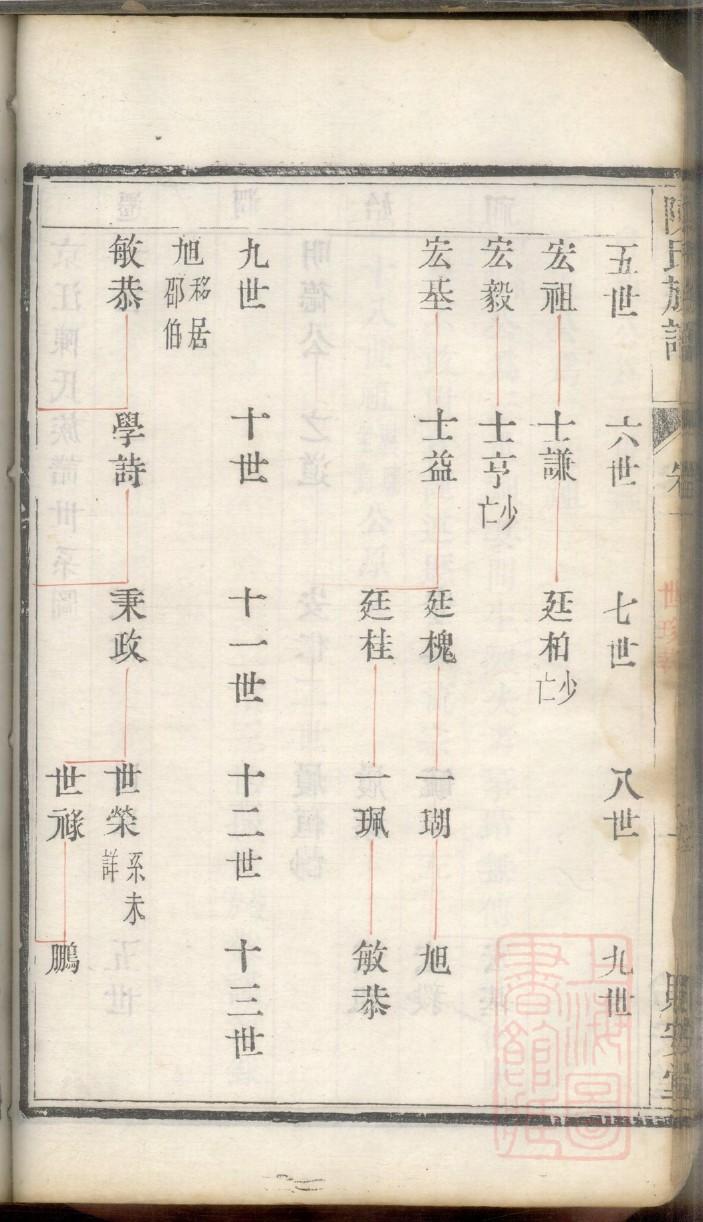 陳氏族譜 卷一 世系 一
五世 六世 七世 八世 九世
宏祖 士謙 廷柏 少亡
宏毅 士亨 少亡
宏基 士益 廷槐 一瑚 旭
廷桂 一珮 敏恭
九世 十世 十一世 十二世 十三世
旭 移居邵伯
敏恭 學詩 秉政 世榮 系未詳
世祿 鵬
上海圖書館藏